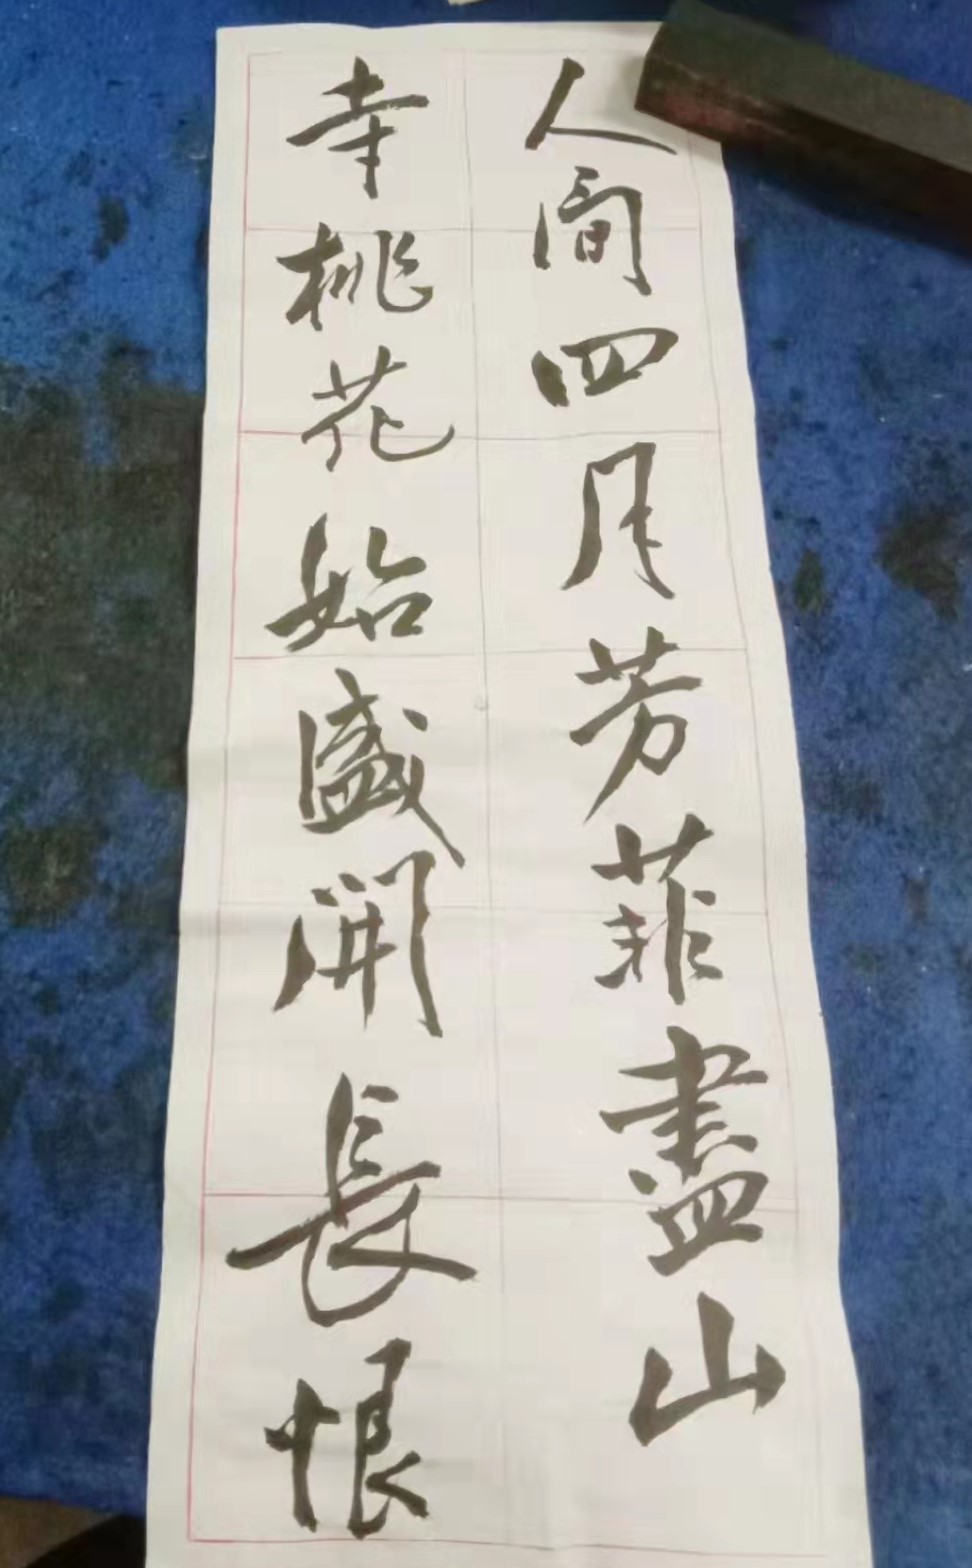 人間四月芳菲盡山
寺桃花始盛開長恨